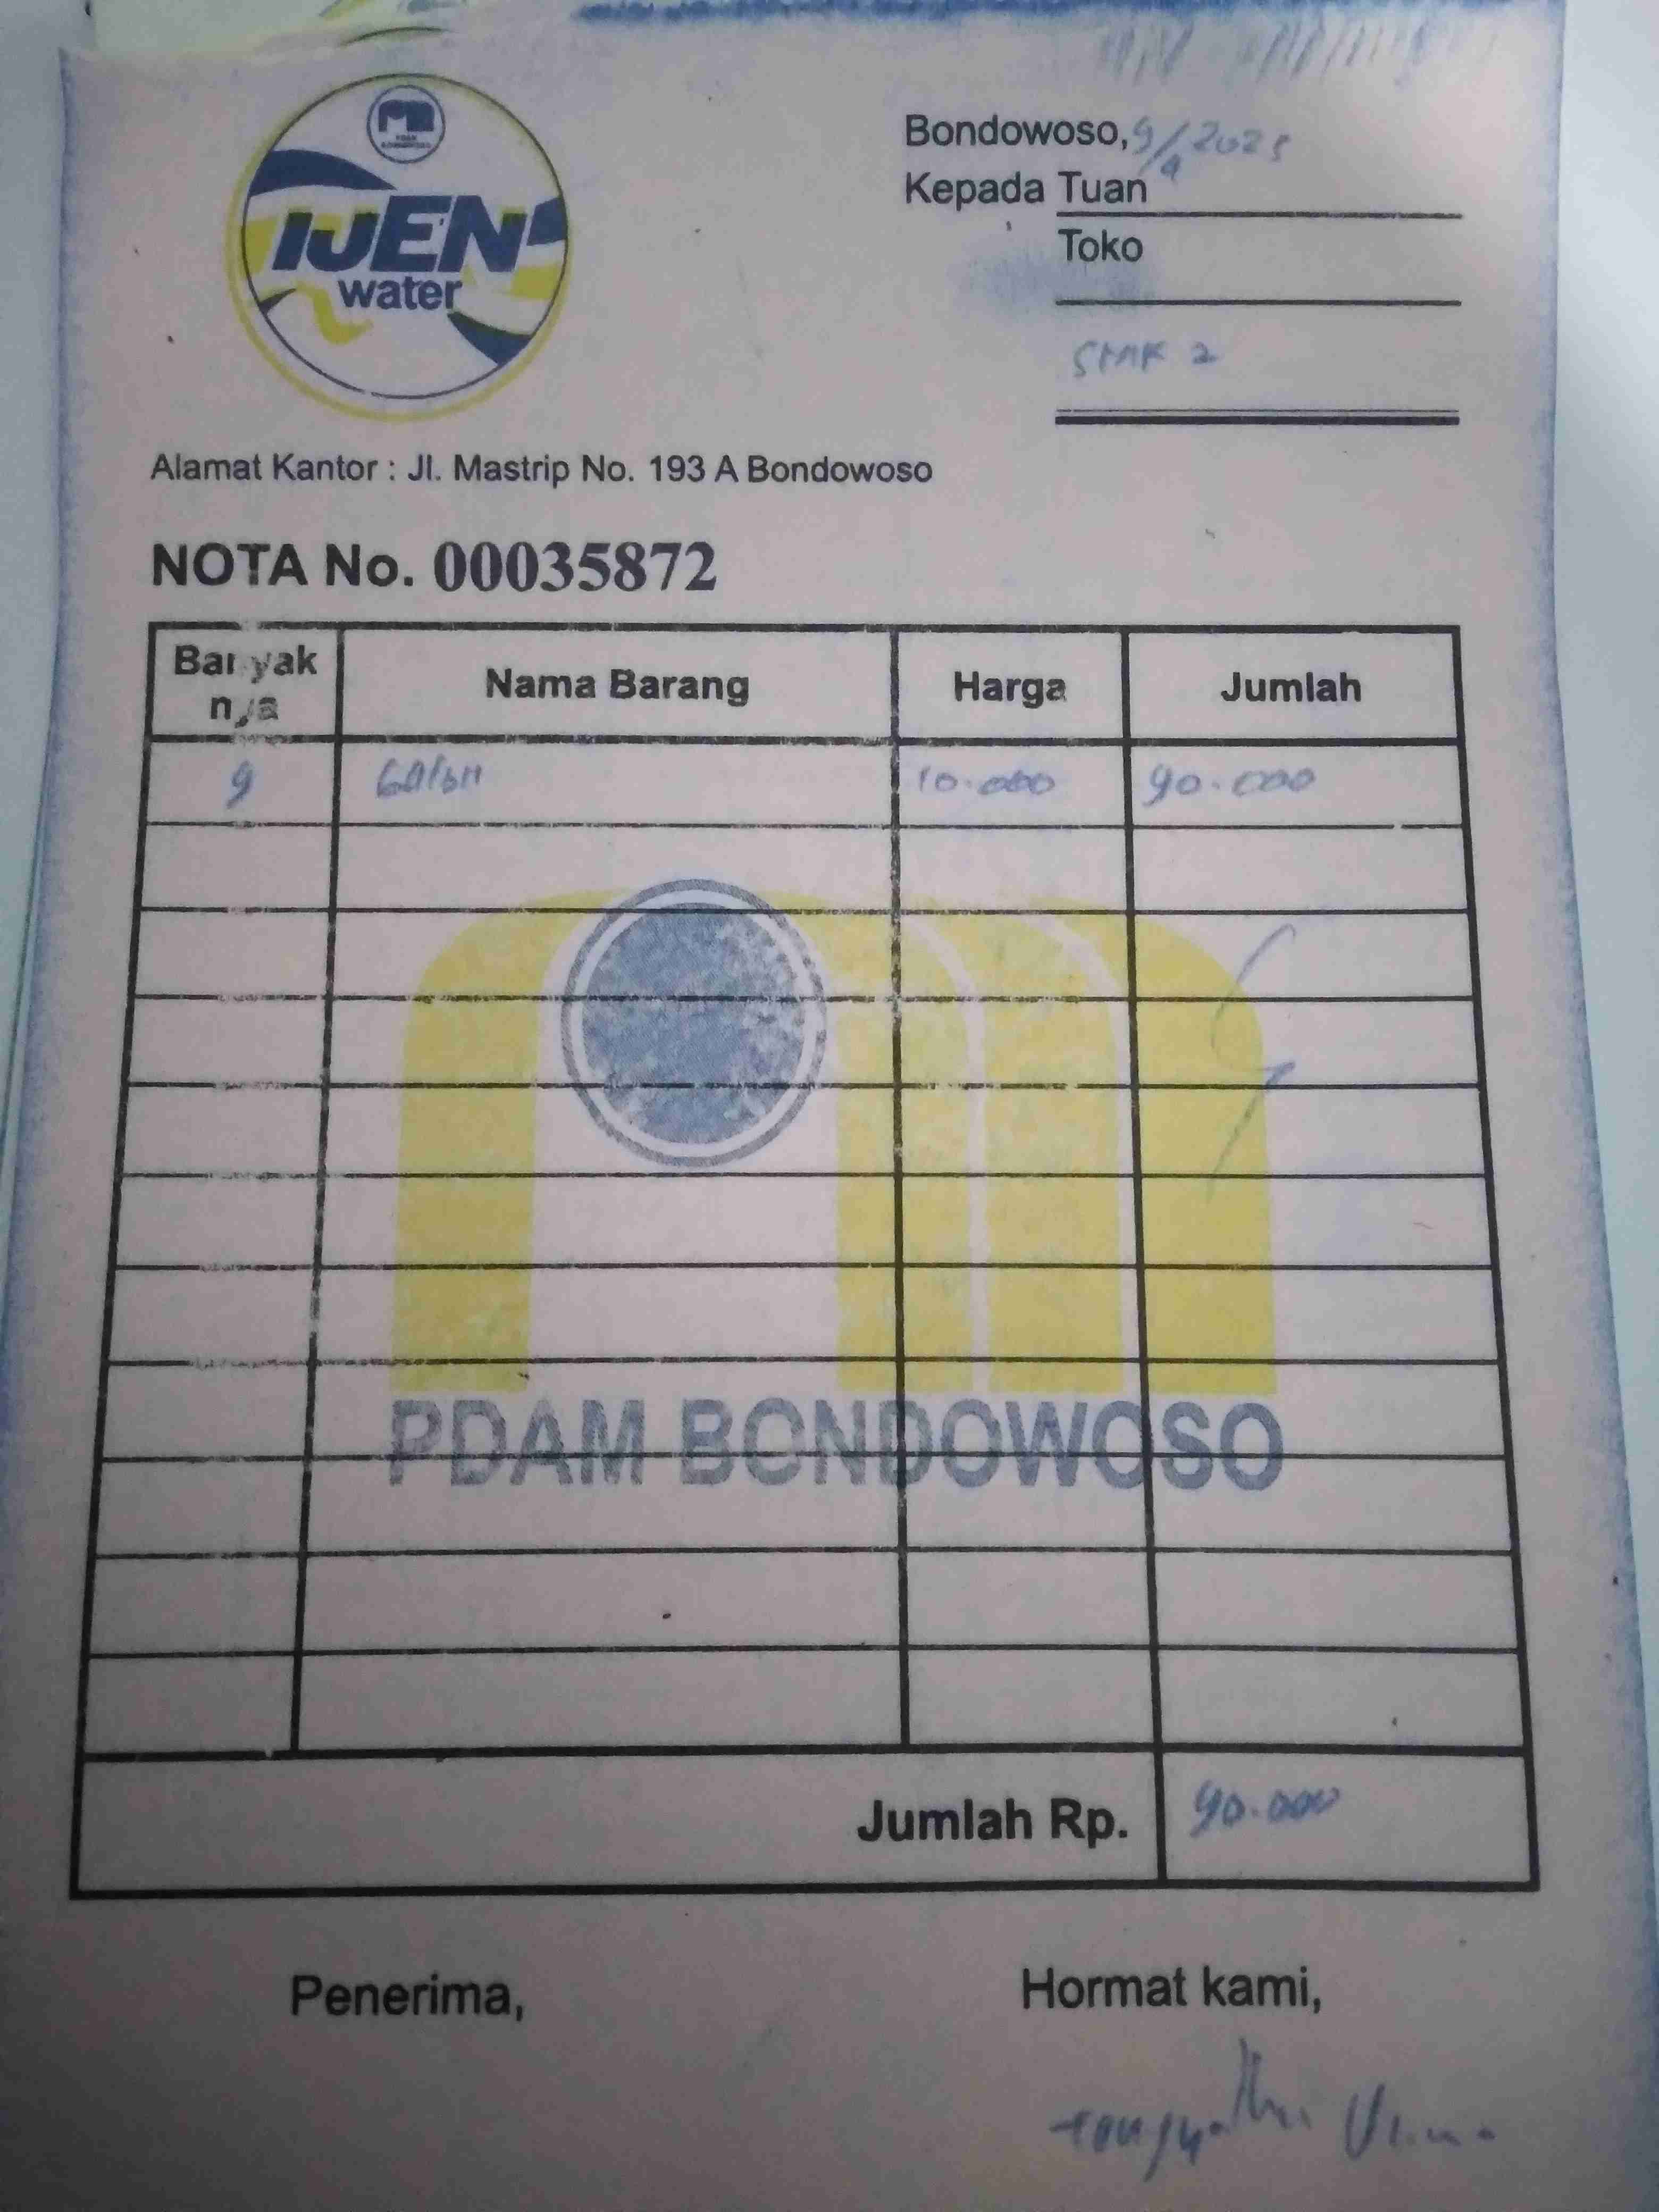 IJEN
water
Bondowoso, 9/9 2025
Kepada Tuan
Toko
SMK 2
Alamat Kantor : Jl. Mastrip No. 193 A Bondowoso
NOTA No. 00035872
Banyak nya Nama Barang Harga Jumlah
9 Galon 10.000 90.000
PDAM BONDOWOSO
Jumlah Rp. 90.000
Penerima, Hormat kami,